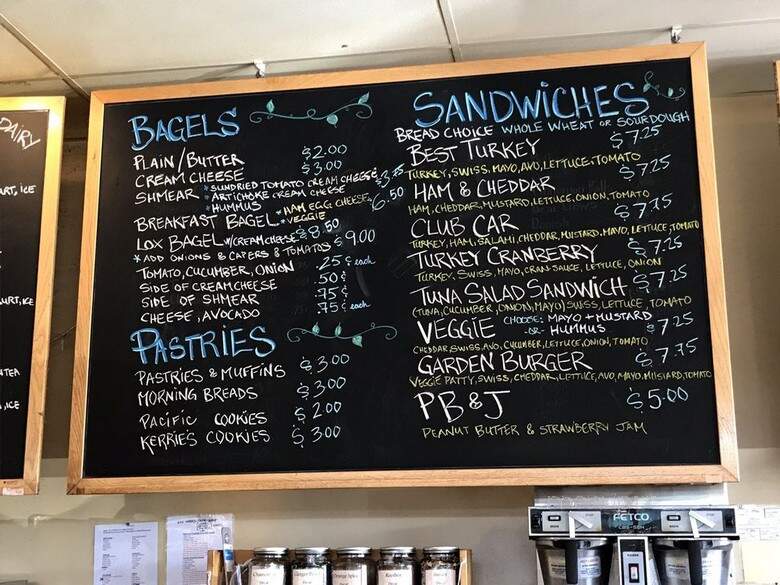 DAIRY
BAGELS
PLAIN/BUTTER $2.00
CREAM CHEESE $3.00
SHMEAR *SUNDRIED TOMATO CREAM CHEESE $3.75
*ARTICHOKE CREAM CHEESE
*HUMMUS
BREAKFAST BAGEL *HAM EGG CHEESE 6.50
*VEGGIE
LOX BAGEL W/CREAM CHEESE $8.50
*ADD ONIONS & CAPERS & TOMATOS $9.00
TOMATO, CUCUMBER, ONION .25¢ each
SIDE OF CREAM CHEESE .50¢
SIDE OF SHMEAR .75¢
CHEESE, AVOCADO .75¢ each
PASTRIES
PASTRIES & MUFFINS $3.00
MORNING BREADS $3.00
PACIFIC COOKIES $2.00
KERRIE'S COOKIES $3.00
SANDWICHES
BREAD CHOICE WHOLE WHEAT OR SOURDOUGH
BEST TURKEY $7.25
TURKEY, SWISS, MAYO, AVO, LETTUCE, TOMATO
HAM & CHEDDAR $7.25
HAM, CHEDDAR, MUSTARD, LETTUCE, ONION, TOMATO
CLUB CAR $7.75
TURKEY, HAM, SALAMI, CHEDDAR, MUSTARD, MAYO, LETTUCE, TOMATO
TURKEY CRANBERRY $7.25
TURKEY, SWISS, MAYO, CRAN SAUCE, LETTUCE, ONION
TUNA SALAD SANDWICH $7.25
(TUNA, CUCUMBER, ONION, MAYO) SWISS, LETTUCE, TOMATO
VEGGIE CHOOSE: MAYO + MUSTARD
-OR- HUMMUS $7.25
CHEDDAR, SWISS, AVO, CUCUMBER, LETTUCE, ONION, TOMATO
GARDEN BURGER $7.75
VEGGIE PATTY, SWISS, CHEDDAR, LETTUCE, AVO, MAYO, MUSTARD, TOMATO
PB&J $5.00
PEANUT BUTTER & STRAWBERRY JAM
FETCO